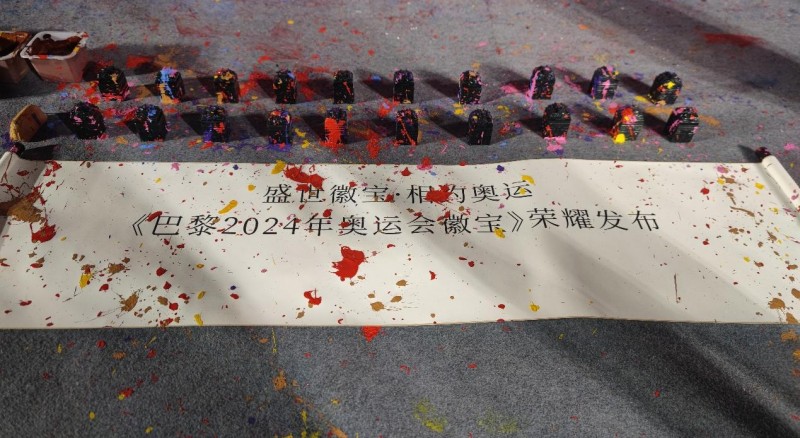 盛世徽宝·相约奥运
《巴黎2024年奥运会徽宝》荣耀发布